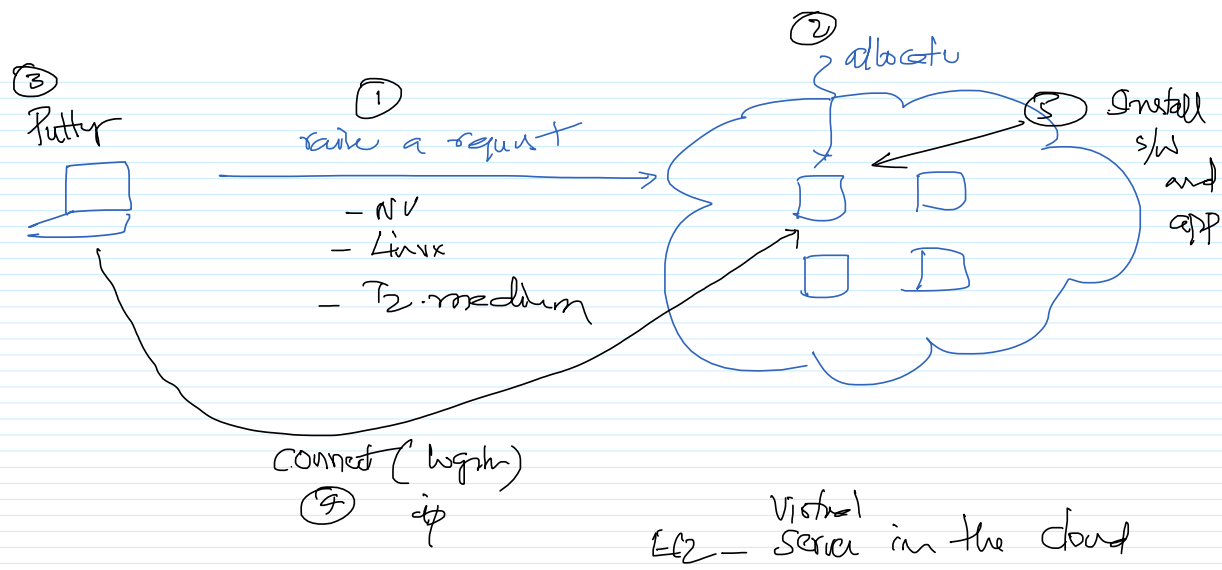 3
Putty
1
raise a request
- NV
- Linux
- T2.medium
2
allocate
5
Install
s/w
and
app
connect (login)
4
ip
EC2 - Virtual
Server in the cloud